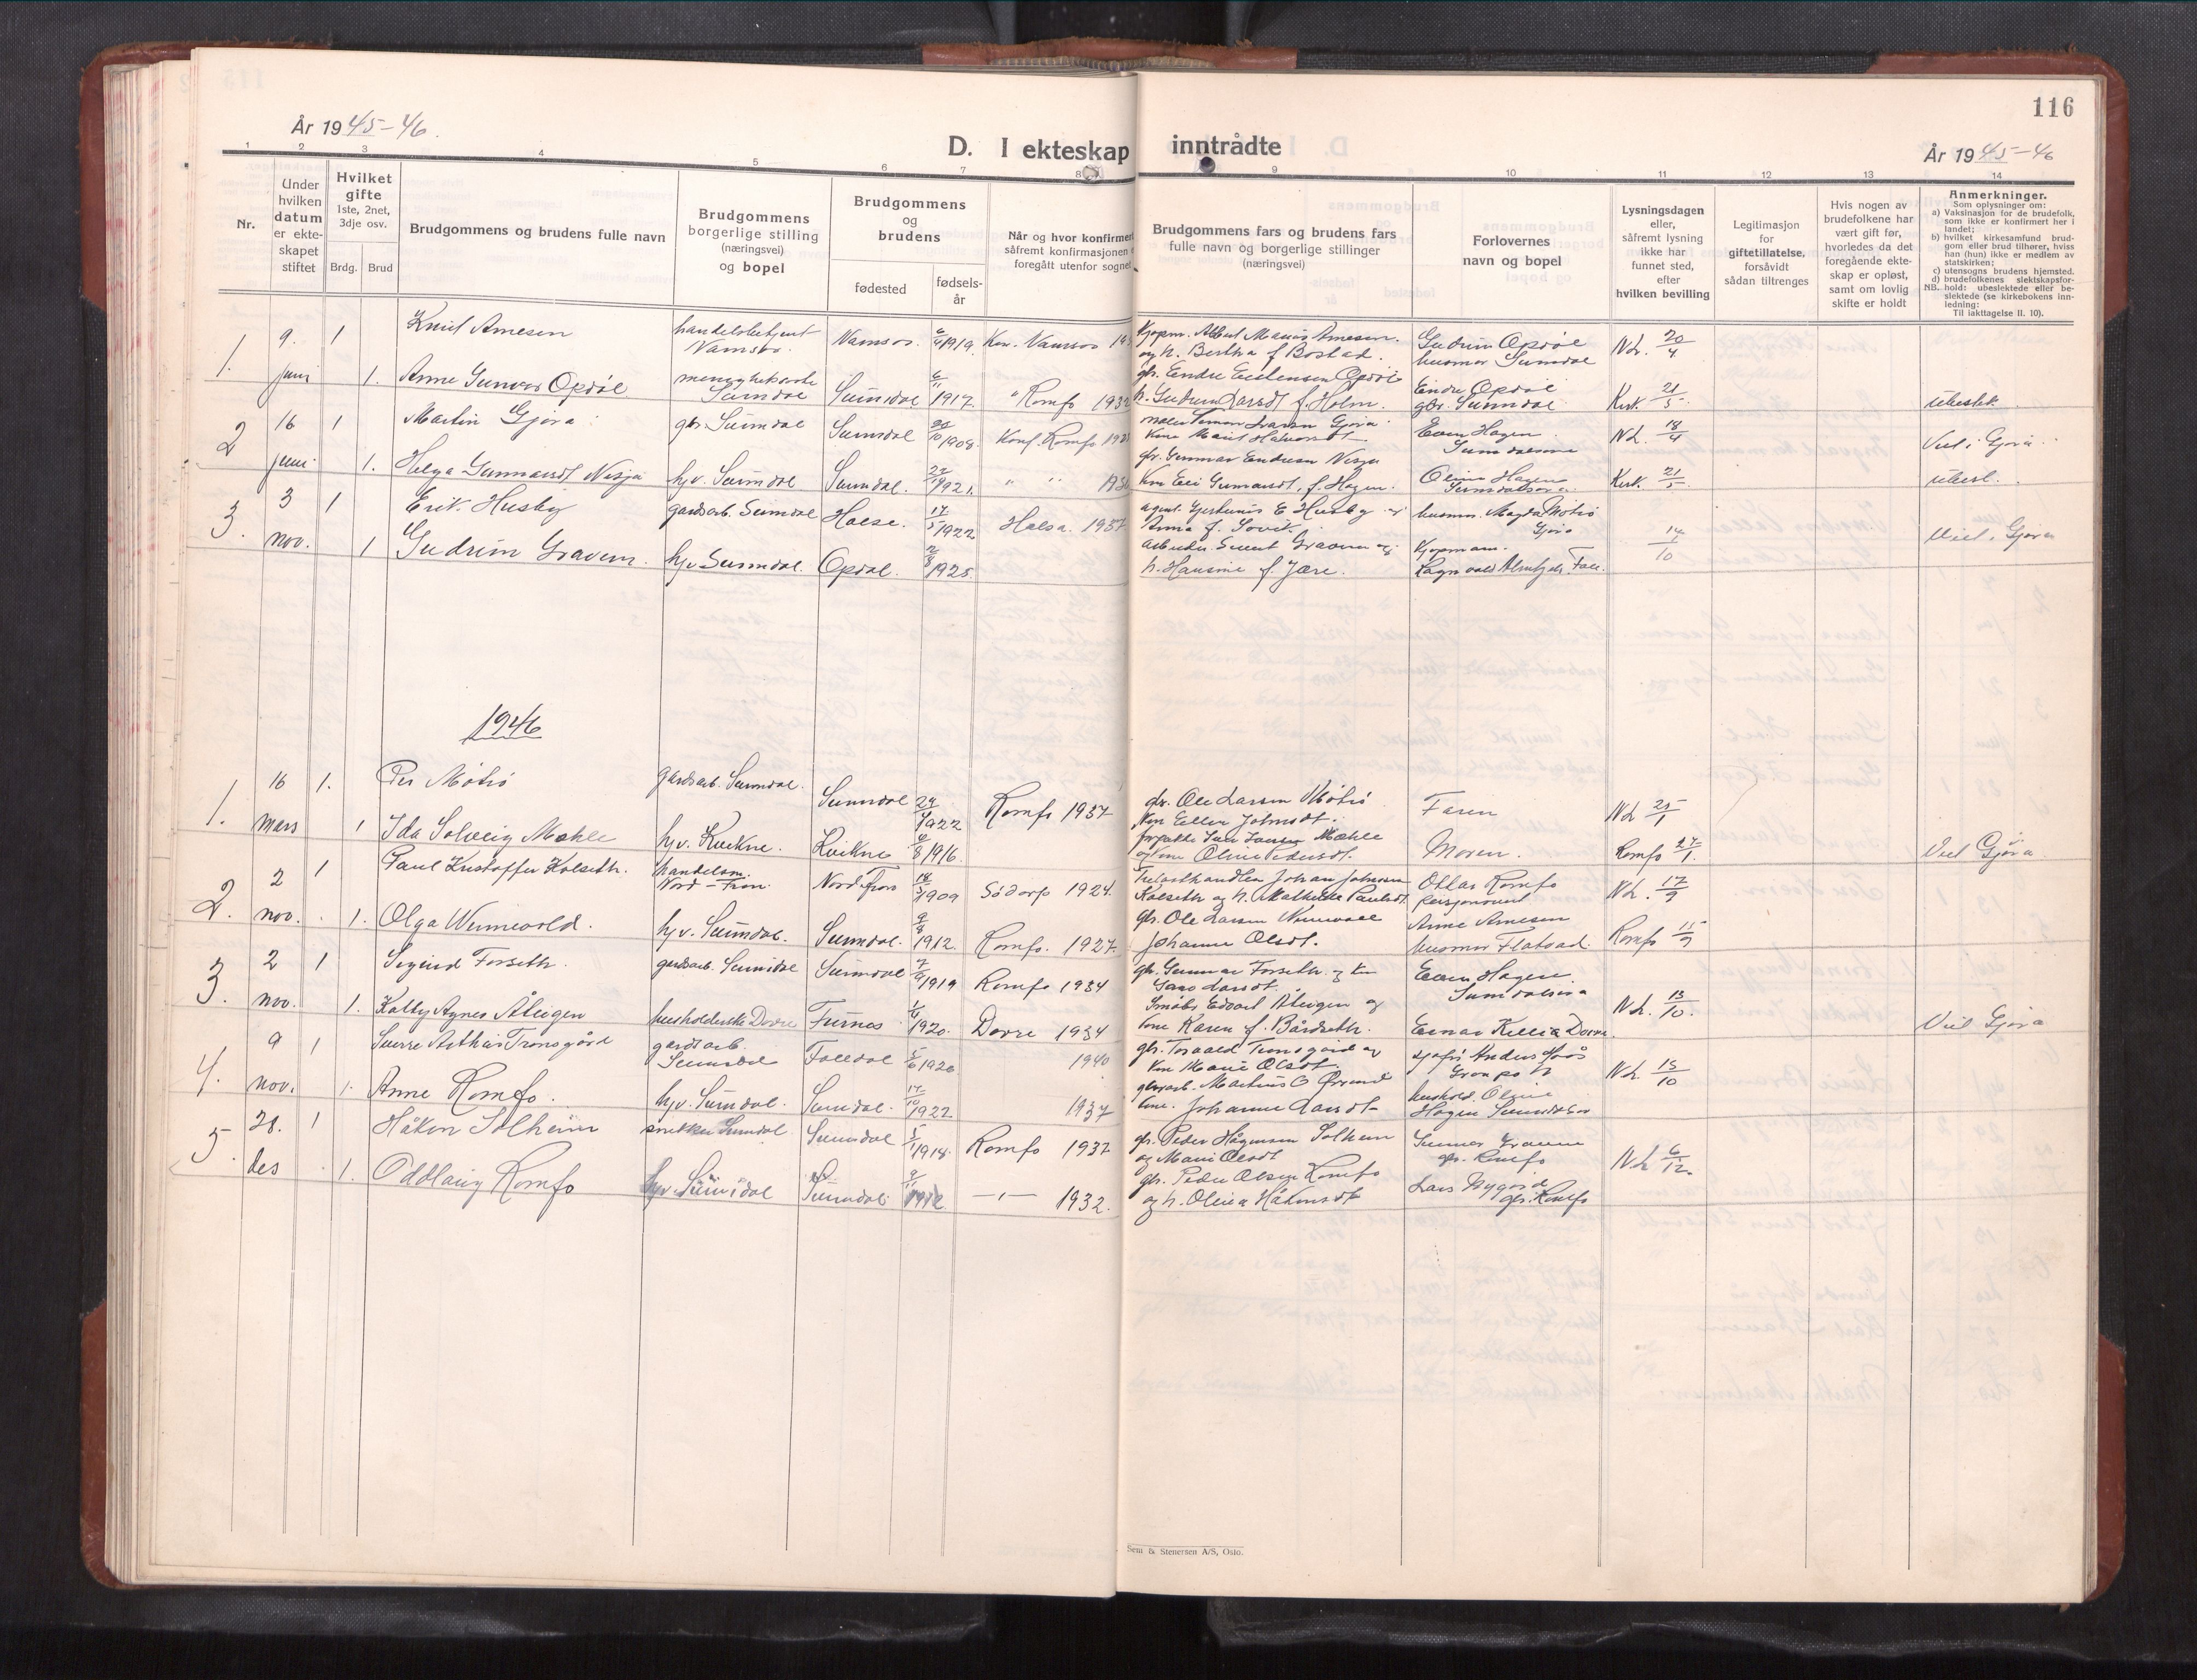 116
År 1945-46.
D. I ekteskap inntrådte
År 1945-46
1 2 3 4 5 6 7 8 9 10 11 12 13 14
Nr.
Under hvilken datum er ekteskapet stiftet
Hvilket gifte
1ste, 2net, 3dje osv.
Brdg. Brud
Brudgommens og brudens fulle navn
Brudgommens borgerlige stilling (næringsvei) og bopel
Brudgommens og brudens
fødested
fødselsår
Når og hvor konfirmert
såfremt konfirmasjonen
foregått utenfor sognet
Brudgommens fars og brudens fars
fulle navn og borgerlige stillinger
(næringsvei)
Forlovernes
navn og bopel
Lysningsdagen
eller,
såfremt lysning
ikke har
funnet sted,
efter
hvilken bevilling
Legitimasjon
for
giftetillatelse,
forsåvidt
sådan tiltrenges
Hvis nogen av
brudefolkene har
vært gift før,
hvorledes da det
foregående ekte-
skap er opløst,
samt om lovlig
skifte er holdt
Anmerkninger.
Som oplysninger om:
a) Vaksinasjon for de brudefolk,
som ikke er konfirmert her i
landet;
b) hvilket kirkesamfund brud-
gom eller brud tilhører, hviss
han (hun) ikke er medlem av
statskirken;
c) utensogns brudens hjemsted.
d) brudefolkenes slektskapsfor-
NB. hold: ubeslektede eller be-
slektede (se kirkebokens inn-
ledning:
Til iakttagelse II. 10).
1. 9. juni 1 Knut Arnesen handelsbetjent Namsos. Namsos. 1919. Kon. Namsos
Kjøpm. Albert Marius Arnesen. og h. Bertha f. Bostad. Gudrun Opdøl husmor Sunndal N.L. 20/4
1. Anne Gunvor Opdøl Sunndal Sunndal 6/11 1917. " Romfo 1932
gbr. Endre Eistensen Opdøl h. Gudrun Larsdt f. Holm. Endre Opdøl gbr. Sunndal Kirk. 21/5 ubeslekt.
2 16 juni 1 Martin Gjøra gbr. Sunndal Sunndal 1908. Konf. Romfo
Gjøra Kone Marit Halvorsdt Even Hagen Sunndalsøra N.L. 18/4 Viet i Gjøra
1. Helga Gunnarsdt Nisja hjv. Sunndal Sunndal. 1921. " "
gbr. Gunnar Endresen Nisja Kone Eli Gunnarsdt. f. Hagen. Oline Hagen Sunndalsøra Kirk. 21/5 ubesl.
3. 3 nov. 1 Erik Husby gardsarb. Sunndal Halse. 17/5 1922 Halsa. 1937
agent. E Husby og Anna f. husmor. Magda Møtrø Gjøra 14/10 Viet i Gjøra
1 Gudrun Gravem. hjv Sunndal. Opdal. 1925.
arbeider Sivert Gravem og h. Hansine f. Jære. Kjøpmann. Ragnvald
1946
1. 16 mars 1. Per Møtrø gardsarb. Sunndal. Sunndal 1922 Romfo 1937
gbr. Ole Larsen Møtrø Kone Ellen Johnsdt. Faren N.L 25/1
1 Ida Solveig Mæhle hjv. Kvikne. Kvikne 6/8 1916.
Mæhle og kone Oline Pedersdt. Moren. Romfo 27/1. Viet Gjøra
2. 2 nov. 1 Paul Kristoffer Kolseth. handelsm. Nord-Fron. Nord-Fron 1909 Sødorp 1924.
Trelasthandler Johan Johnsen Kolseth og h. Mathilde Paulsdt. Ottar Romfo N.L. 17/9
1. Olga Wennevold. hjv. Sunndal. Sunndal. 1912. Romfo. 1927.
gbr. Ole Larsen Wennevold Johanne Olsdt. Anne Arnesen husmor Flatvad. Romfo 15/9
3. 2 nov. 1 Sigurd Forseth. gardsarb. Sunndal Sunndal 1919 Romfo 1934
gbr. Gunnar Forseth og kone Larsdt. Even Hagen Sunndalsøra N.L. 13/10.
1. Kolby Agnes Åleigen husholderske Dovre Furnes 1920. Dovre 1934
Småbr. Edvart Åleigen og kone Karen f. Bårdseth. Einar Killi Dovre. Viet Gjøra
4. 9 nov. 1 Sverre Arthur Tronsgård gardsarb. Sunndal Folldal 1920 1940
gbr. Torvald Tronsgård og kone Marie Olsdt. Anders N.L. 15/10
1. Anne Romfo. hjv. Sunndal. Sunndal. 17/10 1922 1937
Martinus O kone. Johanne Larsdt Oline Hagen Sunndalsøra
5. 28. des 1 Håkon Solheim snekker Sunndal Sunndal 1918. Romfo 1932
gbr. Peder Hågensen Solheim og Marie Olsdt Gunnar Gravem gbr. Romfo N.L. 6/12.
1. Oddlaug Romfo hjv. Sunndal Sunndal. -"- 1932.
gbr. Peder Olsen Romfo og h. Olina Håkonsdt Lars Nygård gbr. Romfo
Sem & Stenersen A/S, Oslo.